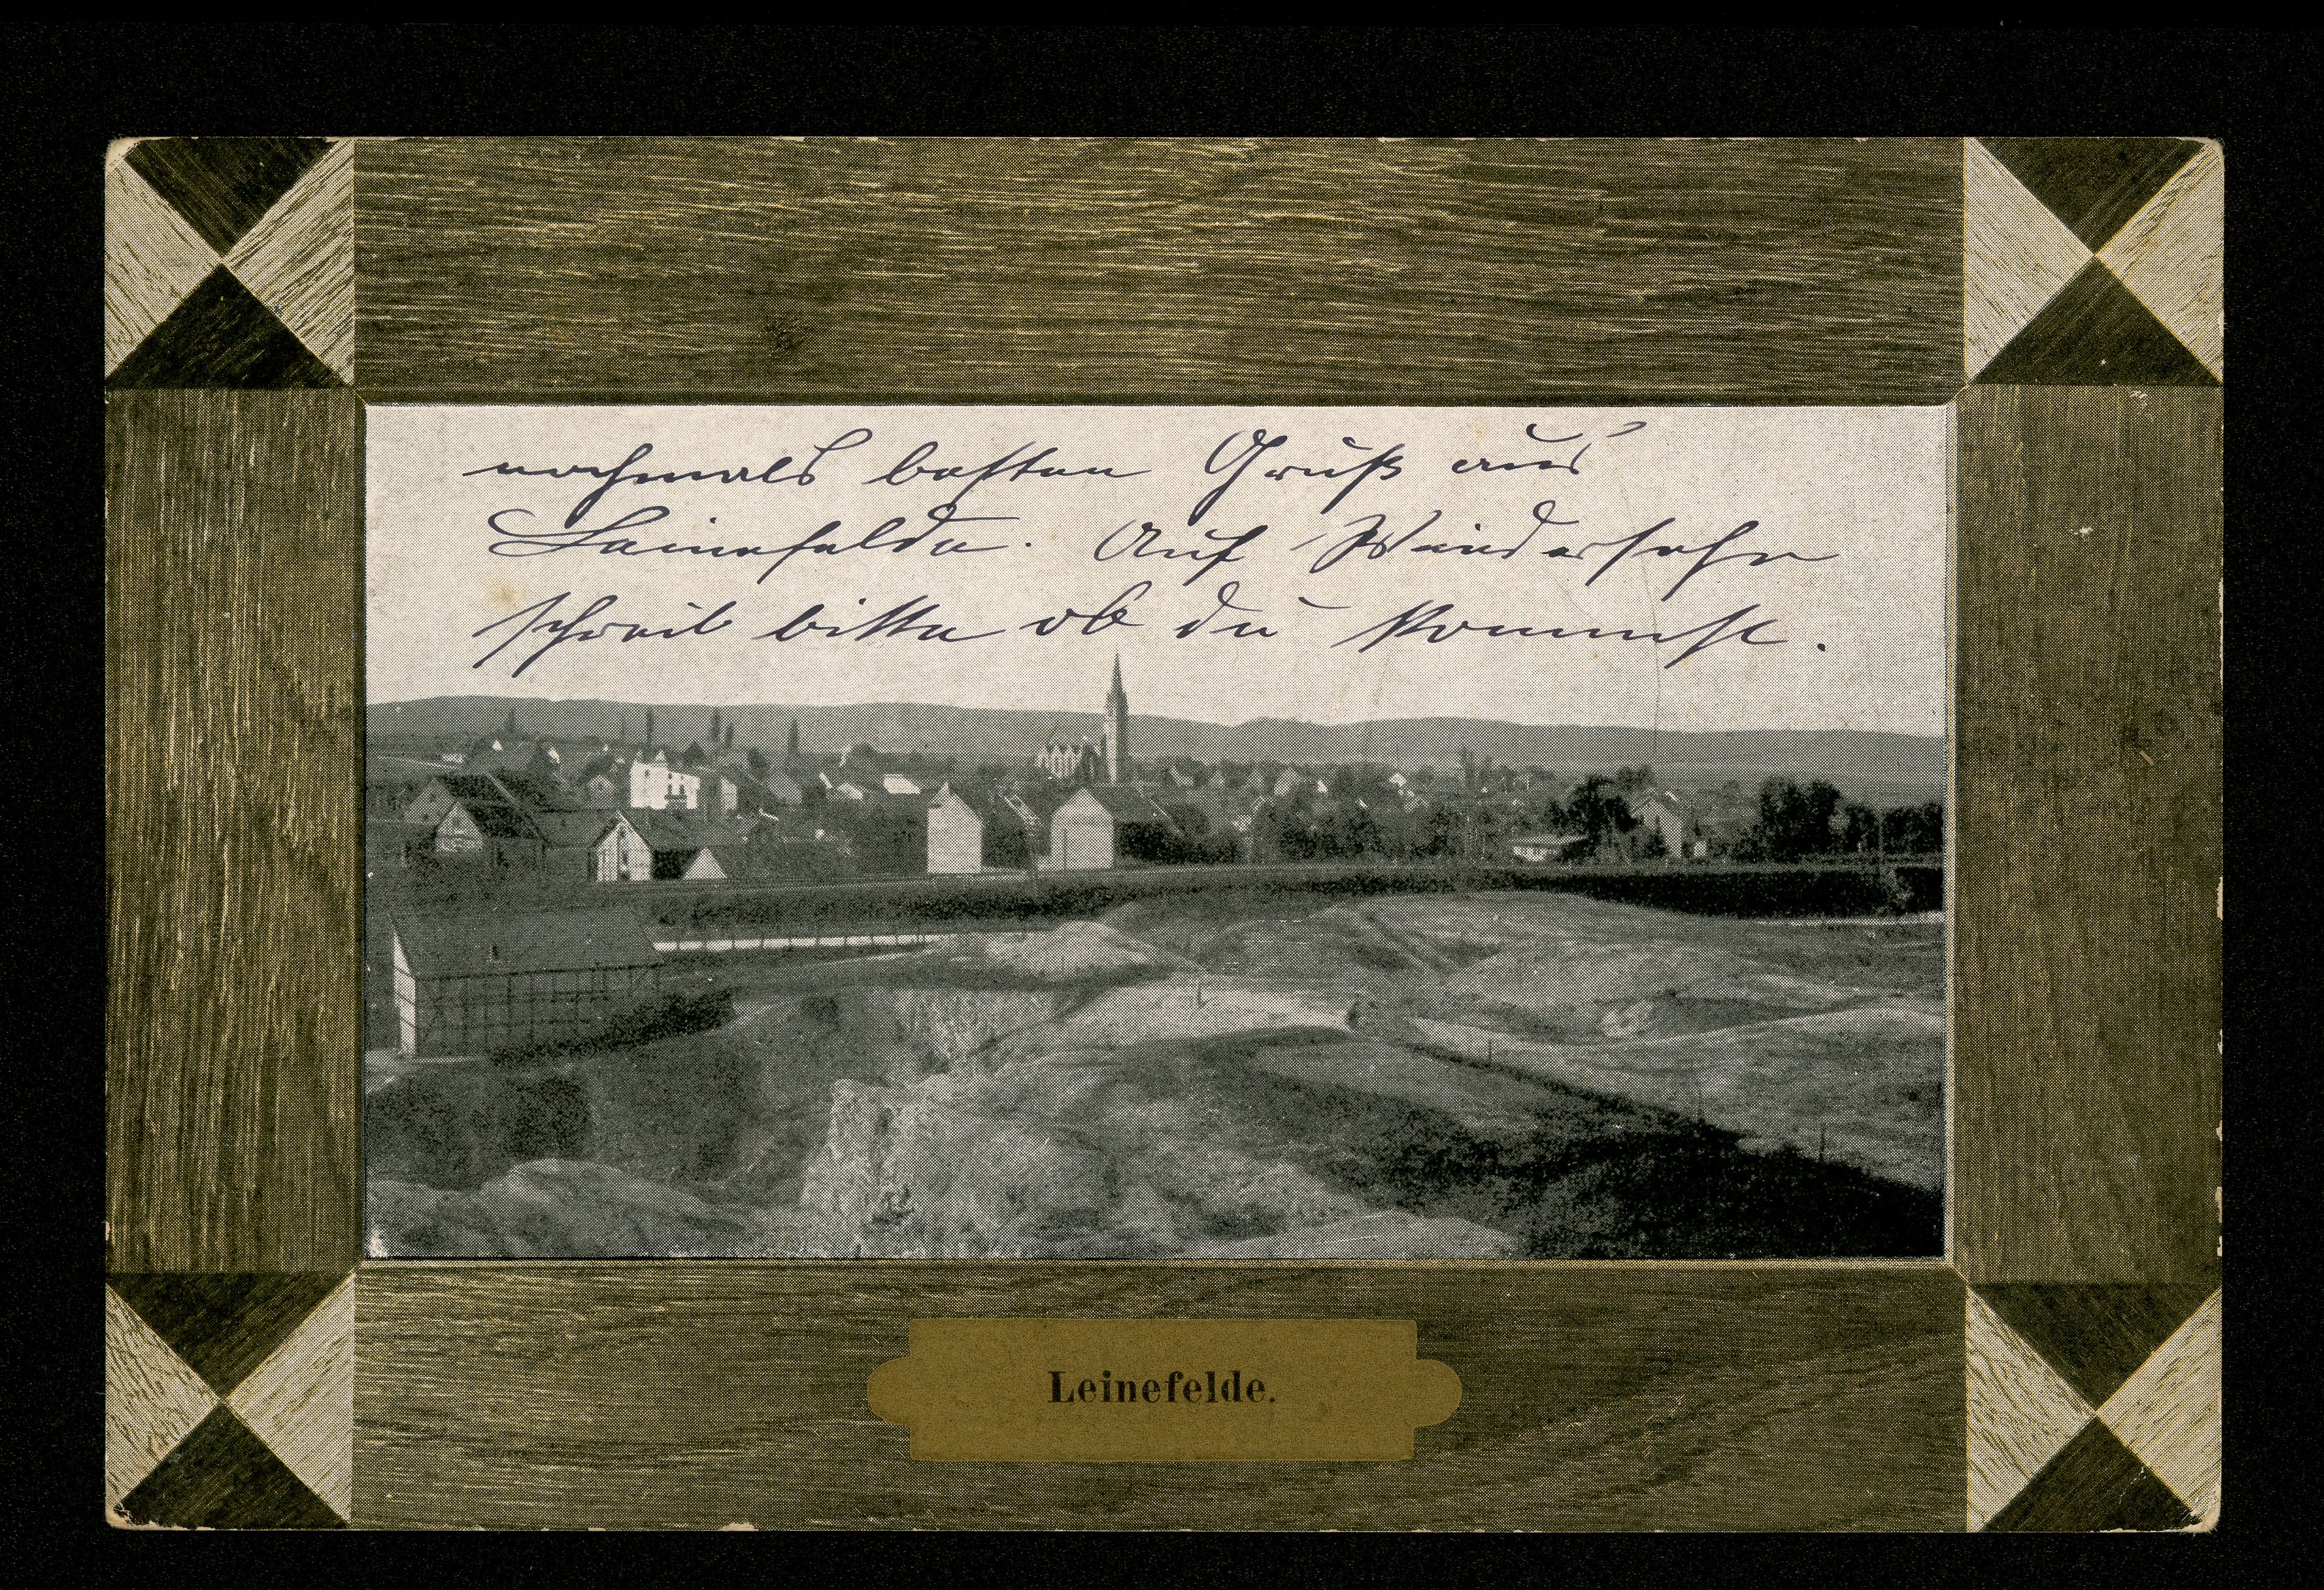 nochmals besten Gruß aus
Leinefelde. Auf Wiedersehn
schreib bitte ob du kommst.
Leinefelde.